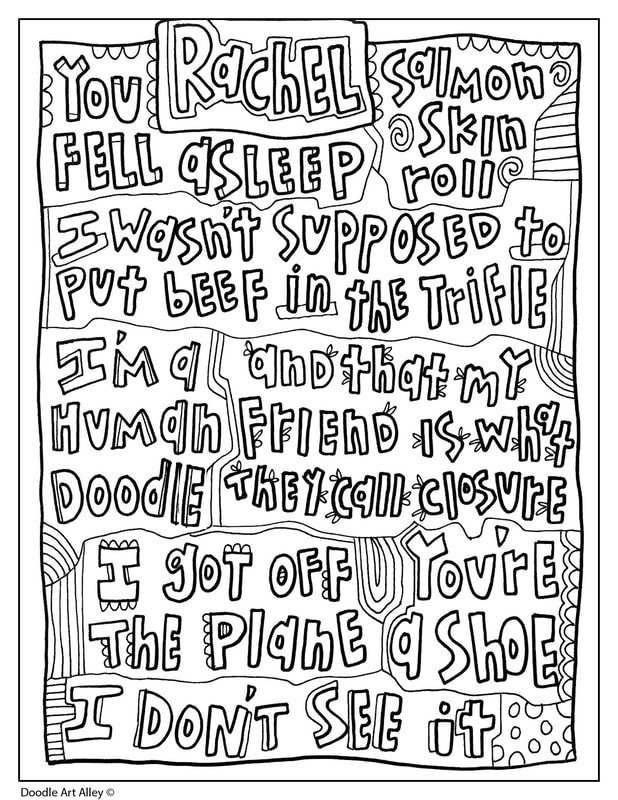 Rachel
You
fell asleep
Salmon
Skin
roll
I wasn't supposed to
put beef in the Trifle
I'm a
Human
Doodle
and that my
Friend is what
they call closure
I got off
the plane
You're
a shoe
I don't see it
Doodle Art Alley ©